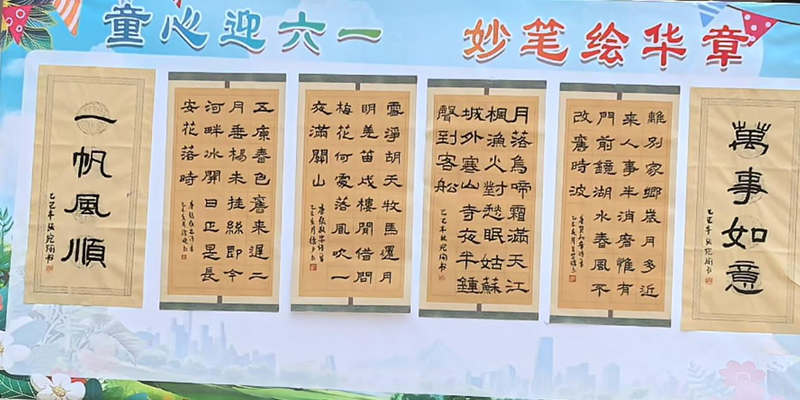 童心迎六一 妙笔绘华章
一帆風順
乙巳年
五原春色舊来遲二
月垂楊未挂絲即今
河畔冰開日正是長
安花落時
雪淨胡天牧馬還月
明羌笛戍樓間借問
梅花何處落風吹一
夜滿關山
月落烏啼霜滿天江
楓漁火對愁眠姑蘇
城外寒山寺夜半鐘
聲到客船
乙巳年
離別家鄉歲月多近
来人事半消磨惟有
門前鏡湖水春風不
改舊時波
萬事如意
乙巳年